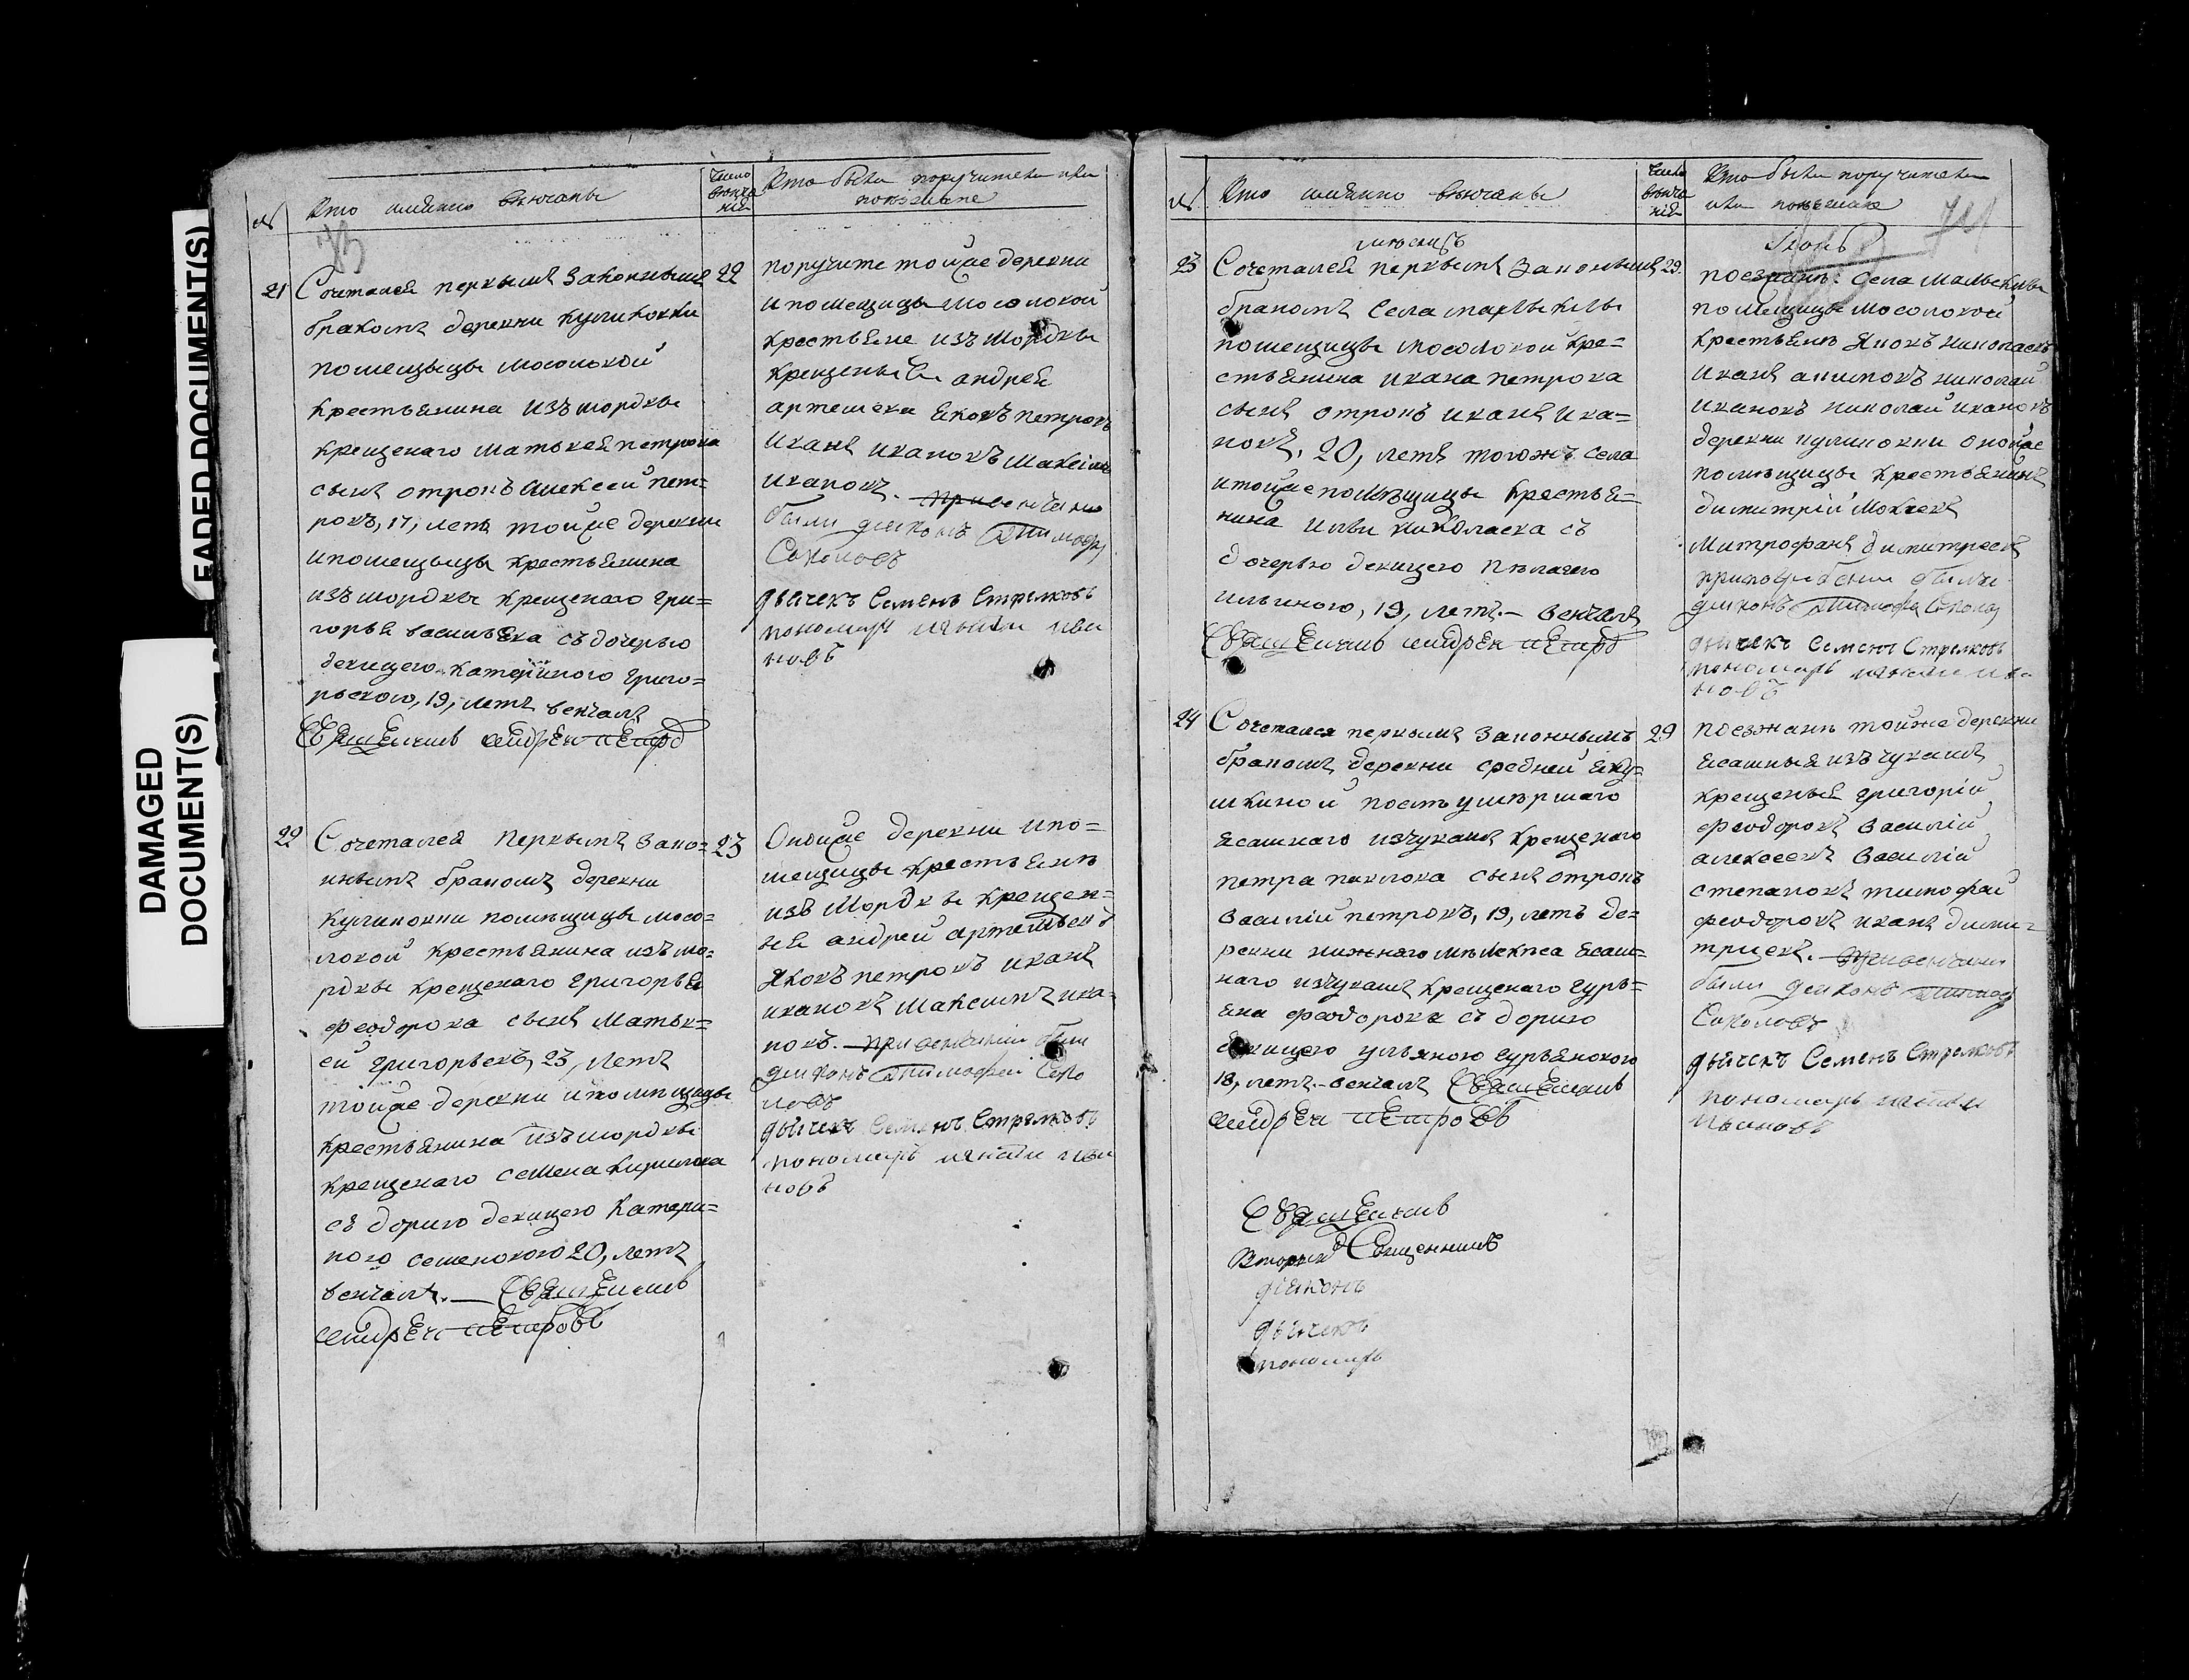 FADED DOCUMENT(S)
DAMAGED
DOCUMENT(S)
№
Кто имянно венчаны
Число
венча
нїя
Кто были поручители или
поезжане
73
21
Сочетался первымъ законнымъ
22
бракомъ деревни куликовки
помещицы мосоловой
крестьянина изъ мордвы
крещенаго матвея петрова
сынъ отрокъ алексей пет=
ровъ, 17, летъ тойже деревни
ипомещицы крестьянина
изъ мордвы крещенаго гри=
горья васильева съ дочерью
девицею катериною григо=
рьевою, 19, летъ венчалъ
Священникъ андрей петров
поручите тойже деревни
ипомещицы мосоловой
крестьяне изъ мордвы
крещеныя андрей
артемьевъ яковъ петровъ
иванъ ивановъ максимъ
ивановъ. при венчании
были диаконъ Тимофей
Соколовъ
дьячекъ Семенъ Стрелковъ
пономарь игнатий ива
новъ
22
Сочетался первымъ зако=
23
ннымъ бракомъ деревни
куликовки помещицы мосо=
ловой крестьянина изъ мо=
рдвы крещенаго григорья
феодорова сынъ матве=
ей григорьевъ, 23, летъ
тойже деревни ипомещицы
крестьянина изъ мордвы
крещенаго семена кирилова
съ дориго девицею катери=
ного семеновою 20, летъ
венчалъ. — Священникъ
андрей петровъ
Оной же деревни ипо=
мещицы крестьянъ
изъ мордвы крещен=
ыя андрей артемьевъ
яковъ петровъ иванъ
ивановъ максимъ ива=
новъ. при венчании были
диаконъ Тимофей Соко
ловъ
дьячекъ Семенъ Стрелковъ
пономарь игнатий ива
новъ
№
Кто имянно венчаны
Число
венча
нїя
Кто были поручители
или поезжане
74
месяцъ
Июнь
23
Сочетался первымъ законнымъ
29.
бракомъ села
помещицы мосоловой кре=
стьянина ивана петрова
сынъ отрокъ иванъ ива=
новъ, 20, летъ тогожъ села
итойже помещицы крестья=
нина ильи николаева съ
дочерью девицею пелагею
ильиною, 19, летъ. — венчалъ
Священникъ андрей петров
поезжане села
помещицы мосоловой
крестьянъ яковъ николаевъ
иванъ акимовъ николай
ивановъ николай ивановъ
деревни куликовки оной же
помещицы крестьянинъ
димитрий мокеевъ
митрофанъ димитревъ
были
диаконъ Тимофей Соколов
дьячекъ Семенъ Стрелковъ
пономарь игнатий ива
новъ
24
Сочетался первымъ законнымъ
29
бракомъ деревни средней яку=
шкиной умершаго
ясашнаго изчувашъ крещенаго
петра павлова сынъ отрокъ
василий петровъ, 19, летъ де=
ревни нижняго ясаш=
наго изчувашъ крещенаго гурь=
яна феодорова съ дориго
девицею ульяною гурьяновою
18, летъ. венчалъ Священникъ
андрей петровъ
поезжанъ тойже деревни
ясашныя изъ чувашъ
крещеныя григорий
феодоровъ василий
алексеевъ василий
степановъ тимофей
феодоровъ иванъ дими=
триевъ. — при венчании
были диаконъ Тимофей
Соколовъ
дьячекъ Семенъ Стрелковъ
пономарь игнатий
ивановъ
Священникъ
Вторый Священникъ
диаконъ
дьячекъ
пономарь